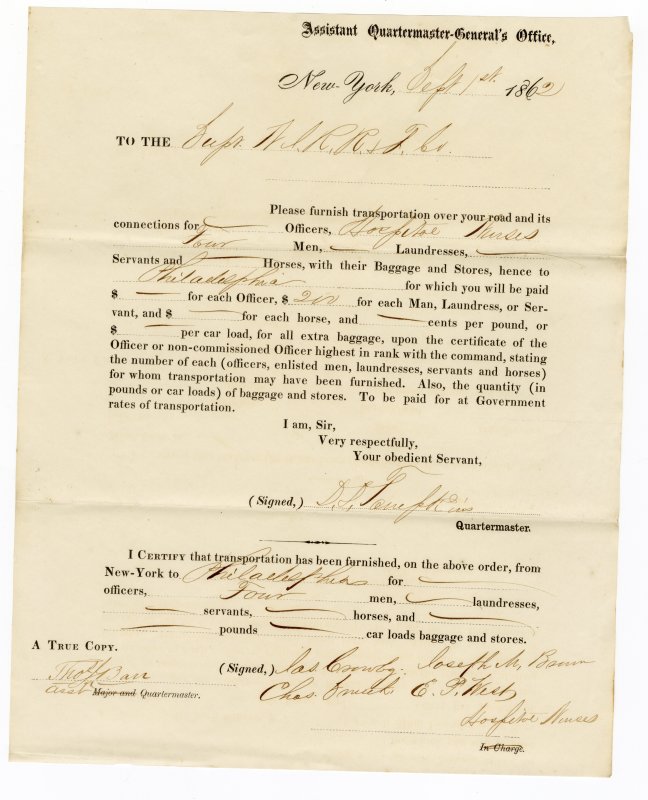 Assistant Quartermaster-General's Office,
New-York, Sept. 1st. 1862
TO THE Supt. R. R. & T. Co.
Please furnish transportation over your road and its
connections for — Officers, Hospital Nurses
Four Men, — Laundresses, —
Servants and — Horses, with their Baggage and Stores, hence to
Philadelphia for which you will be paid
$ — for each Officer, $ 200 for each Man, Laundress, or Ser-
vant, and $ — for each horse, and — cents per pound, or
$ — per car load, for all extra baggage, upon the certificate of the
Officer or non-commissioned Officer highest in rank with the command, stating
the number of each (officers, enlisted men, laundresses, servants and horses)
for whom transportation may have been furnished. Also, the quantity (in
pounds or car loads) of baggage and stores. To be paid for at Government
rates of transportation.
I am, Sir,
Very respectfully,
Your obedient Servant,
(Signed,) D. D. Tompkins
Quartermaster.
I CERTIFY that transportation has been furnished, on the above order, from
New-York to Philadelphia for —
officers, Four men, — laundresses,
— servants, — horses, and —
— pounds — car loads baggage and stores.
A TRUE COPY.
(Signed,) Jas Crowby. Joseph M. Brown
Thos
Asst Major and Quartermaster.
Chas. Smith E. P. West
Hospital Nurses
In Charge.